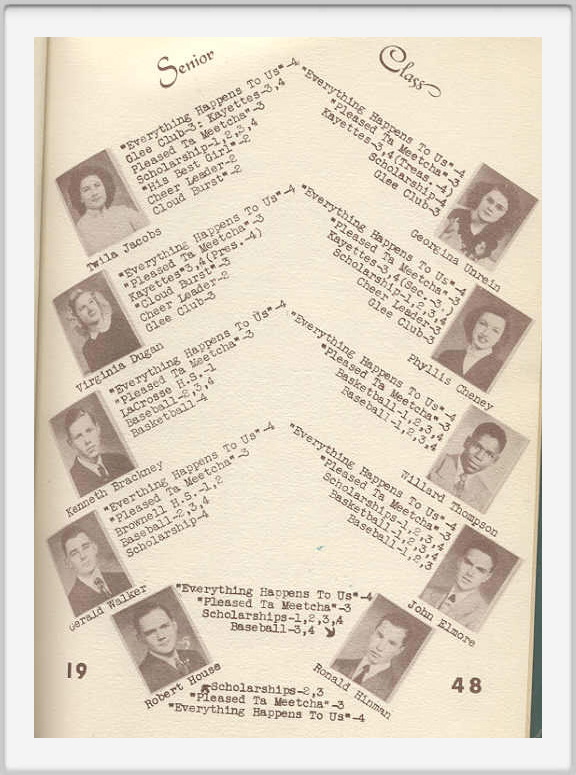 Senior Class
"Everything Happens To Us"-4
Glee Club-3: Kayettes-3,4
Pleased Ta Meetcha"-3
Scholarship-1,2,3,4
"His Best Girl"-2
Cheer Leader-2
Cloud Burst"-2
Twila Jacobs
"Everything Happens To Us"-4
"Pleased Ta Meetcha"-3
Kayettes-3,4(Treas.-4)
Scholarship-4
Glee Club-3
Georgina Unrein
"Everything Happens To Us"-4
"Pleased Ta Meetcha"-3
Kayettes"3,4(Pres.-4)
"Cloud Burst"-3
Cheer Leader-2
Glee Club-3
Virginia Dugan
"Everything Happens To Us"-4
"Pleased Ta Meetcha"-3
Kayettes-3,4(Sec.-3.)
Scholarship-1,2,3,4
Cheer Leader-3
Glee Club-3
Phyllis Cheney
"Everything Happens To Us"-4
"Pleased Ta Meetcha"-3
LaCrosse H.S.-1
Baseball-2,3,4
Basketball-4
Kenneth Brackney
"Everything Happens To Us"-4
"Pleased Ta Meetcha"-3
Basketball-1,2,3,4
Baseball-1,2,3,4
Willard Thompson
"Everthing Happens To Us"-4
"Pleased Ta Meetcha"-3
Brownell H.S.-1,2
Baseball-2,3,4
Scholarship-4
Gerald Walker
"Everything Happens To Us"-4
"Pleased Ta Meetcha"-3
Scholarships-1,2,3,4
Basketball-1,2,3,4
Baseball-1,2,3
John Elmore
"Everything Happens To Us"-4
"Pleased Ta Meetcha"-3
Scholarships-1,2,3,4
Baseball-3,4
Robert House
Ronald Hinman
Scholarships-2,3
"Pleased Ta Meetcha"-3
"Everything Happens To Us"-4
19 48